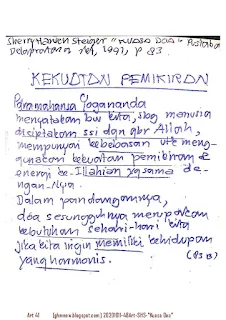 Sherry Hansen Steiger "KUASA DOA" Pustaka
Delapratasa 1991, p 83.
KEKUATAN PEMIKIRAN
Paramahansa Yogananda
menyatakan bw kita, sbg manusia
disiptakan ssi dgn gbr Allah,
mempunyai kebebasan utk meng-
gunakan kekuatan pemikiran &
energi ke-Illahian yg sama de-
ngan-Nya.
Dalam pandangannya,
doa sesungguhnya merupakan
kebutuhan sehari-hari kita
jika kita ingin memiliki kehidupan
yang harmonis.